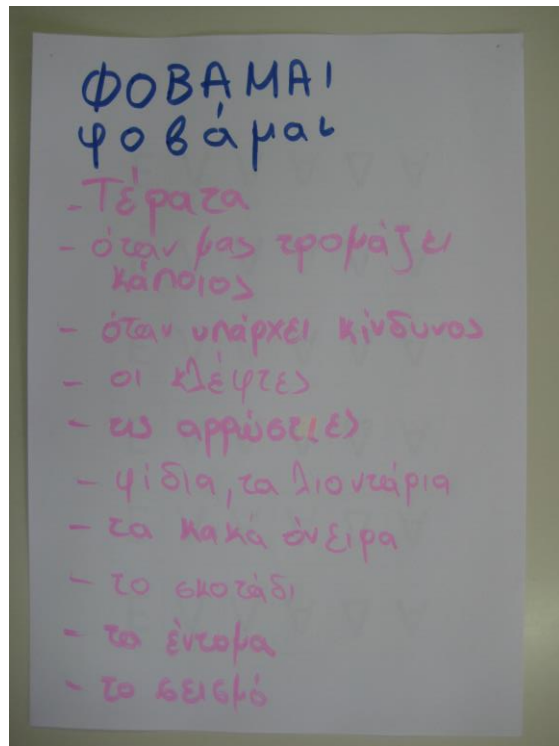 ΦΟΒΑΜΑΙ
φοβάμαι
- Τέρατα
- όταν μας τρομάζει
κάποιος
- όταν υπάρχει κίνδυνος
- οι κλέφτες
- τις αρρώστιες
- φίδια, τα λιοντάρια
- τα κακά όνειρα
- το σκοτάδι
- τα έντομα
- το σεισμό